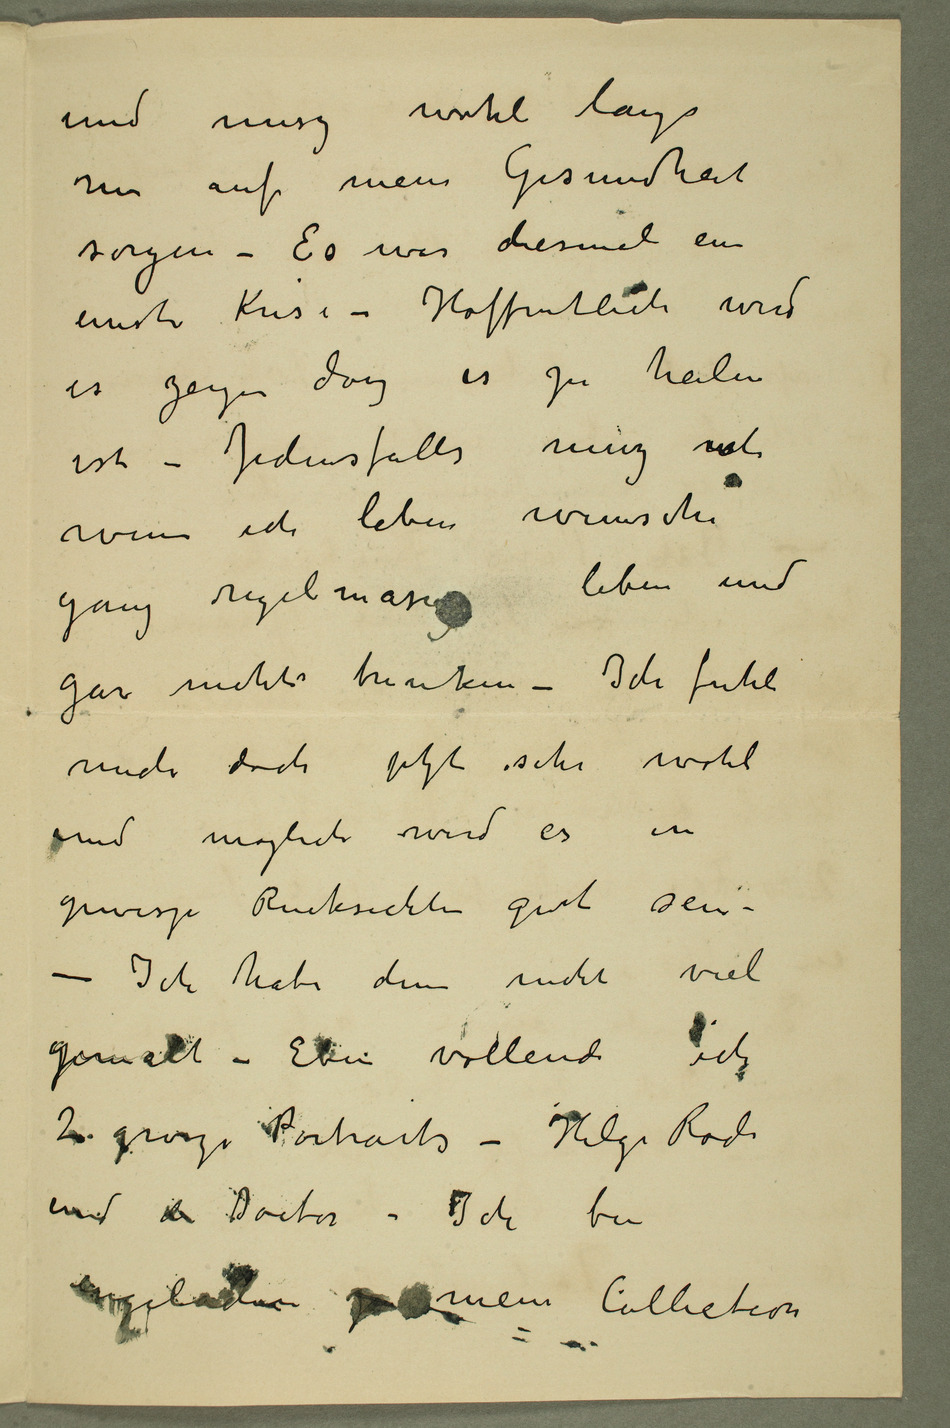 und musz wohl lange
nur auf meine Gesundheit
sorgen – Es war diesmal eine
ernste Krise – Hoffentlich wird
es zeigen dasz es zu heilen
ist – Jedensfalls musz
wenn ich leben wünsche
ganz regelmäsig leben und
gar nichts trinken – Ich fuhle
mich doch jetzt sehr wohl
und moglich wird es in
gewisze Rucksichten gut sein –
– Ich habe denn nicht viel
gemalt – Eben vollende ich
2 grosze Portraits – Helge Rode
und de Doctor – Ich bin
eingeladen meine Collection